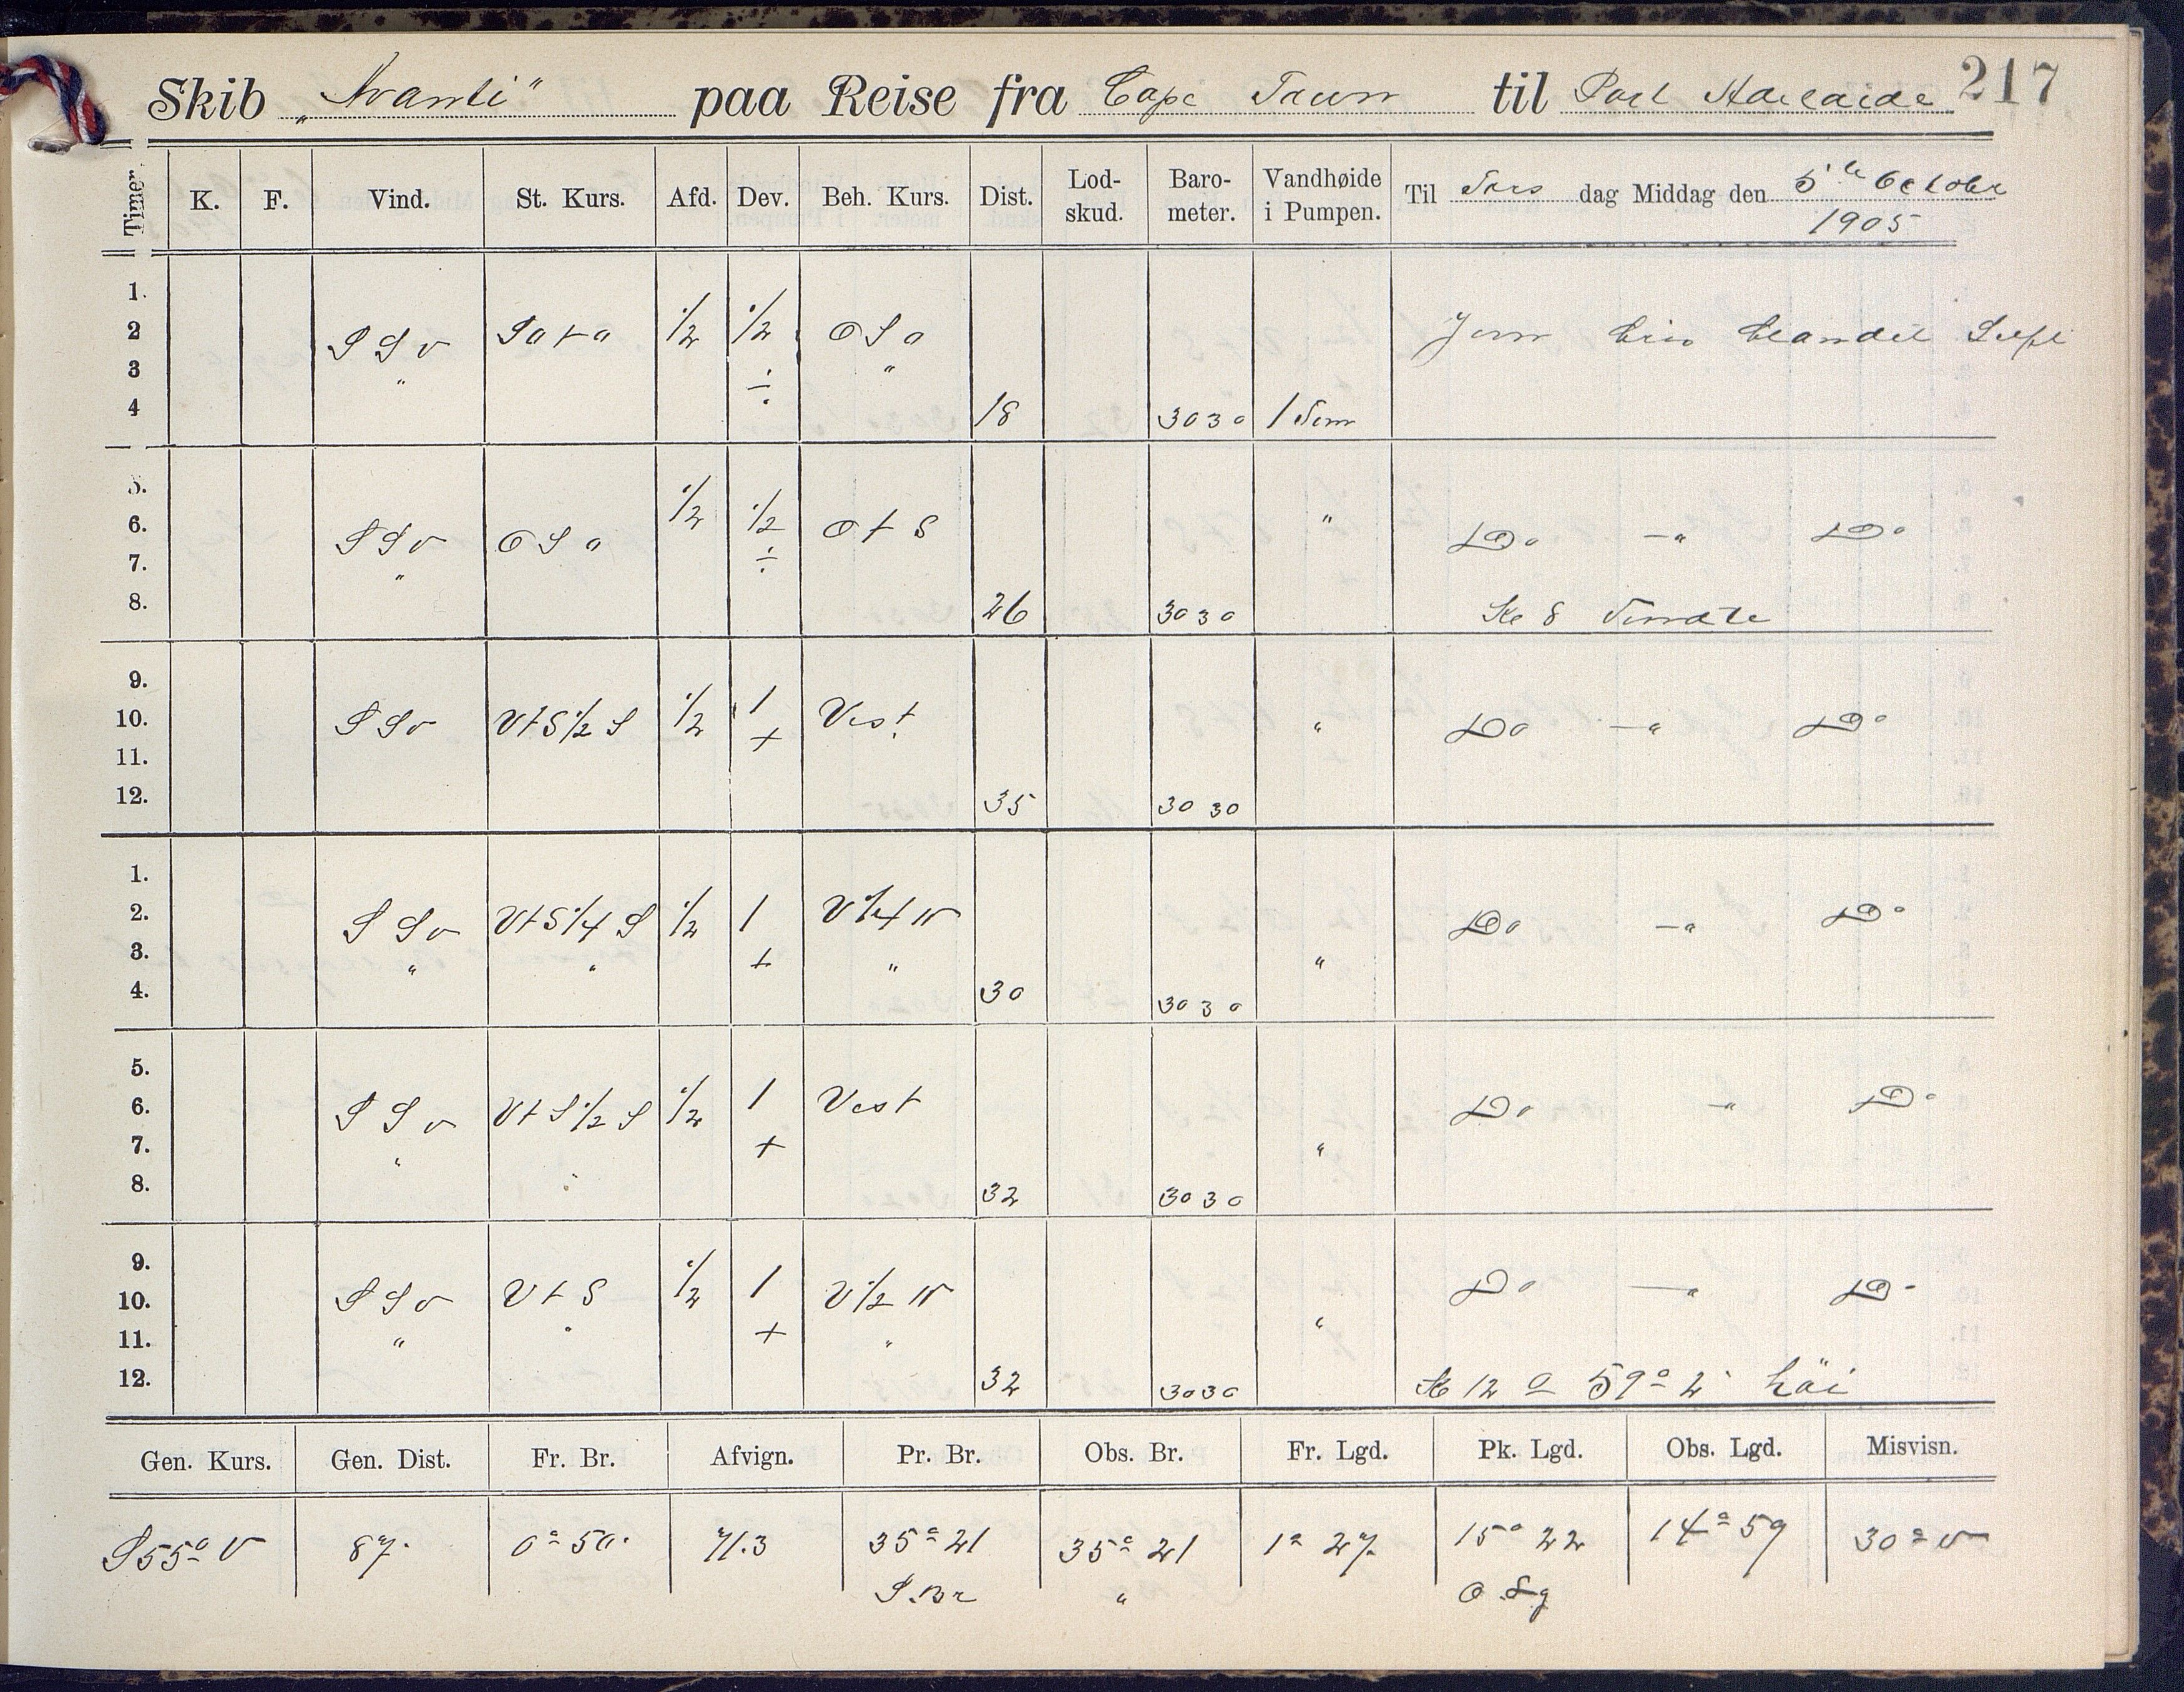 Skib „Avanti" paa Reise fra Cape Town til Port Adelaide 217
Timer. K. F. Vind. St. Kurs. Afd. Dev. Beh. Kurs. Dist. Lod-skud. Baro-meter. Vandhøide i Pumpen. Til Tors dag Middag den 5te October
1905
1.
2 S S V S O t O 1/2 1/2 O S O Jevn Bris blandet
3 " ÷ "
4 18 30 30 1 Tom
5.
6. S S V O S O 1/2 1/2 O t S " Do — " Do
7. " ÷
8. 26 30 30 Kl 8 Vendte
9.
10. S S V V t S 1/2 S 1/2 1 Vest " Do — " Do
11. +
12. 35 30 30
1.
2. S S V V t S 1/4 S 1/2 1 V 1/4 N Do — " Do
3. " " + " "
4. 30 30 30
5.
6. S S V V t S 1/2 S 1/2 1 Vest Do — " Do
7. " + "
8. " 32 30 30
9.
10. S S V V t S 1/2 1 V 1/2 N Do — " Do
11. " " + " "
12. 32 30 30 Kl 12 ☉ 59° 2'
Gen. Kurs. Gen. Dist. Fr. Br. Afvign. Pr. Br. Obs. Br. Fr. Lgd. Pk. Lgd. Obs. Lgd. Misvisn.
S 55° V 87. 0° 50' 71.3 35° 21 35° 21 1° 27. 15° 22 14° 59 30° V
S. Br " O. Lg